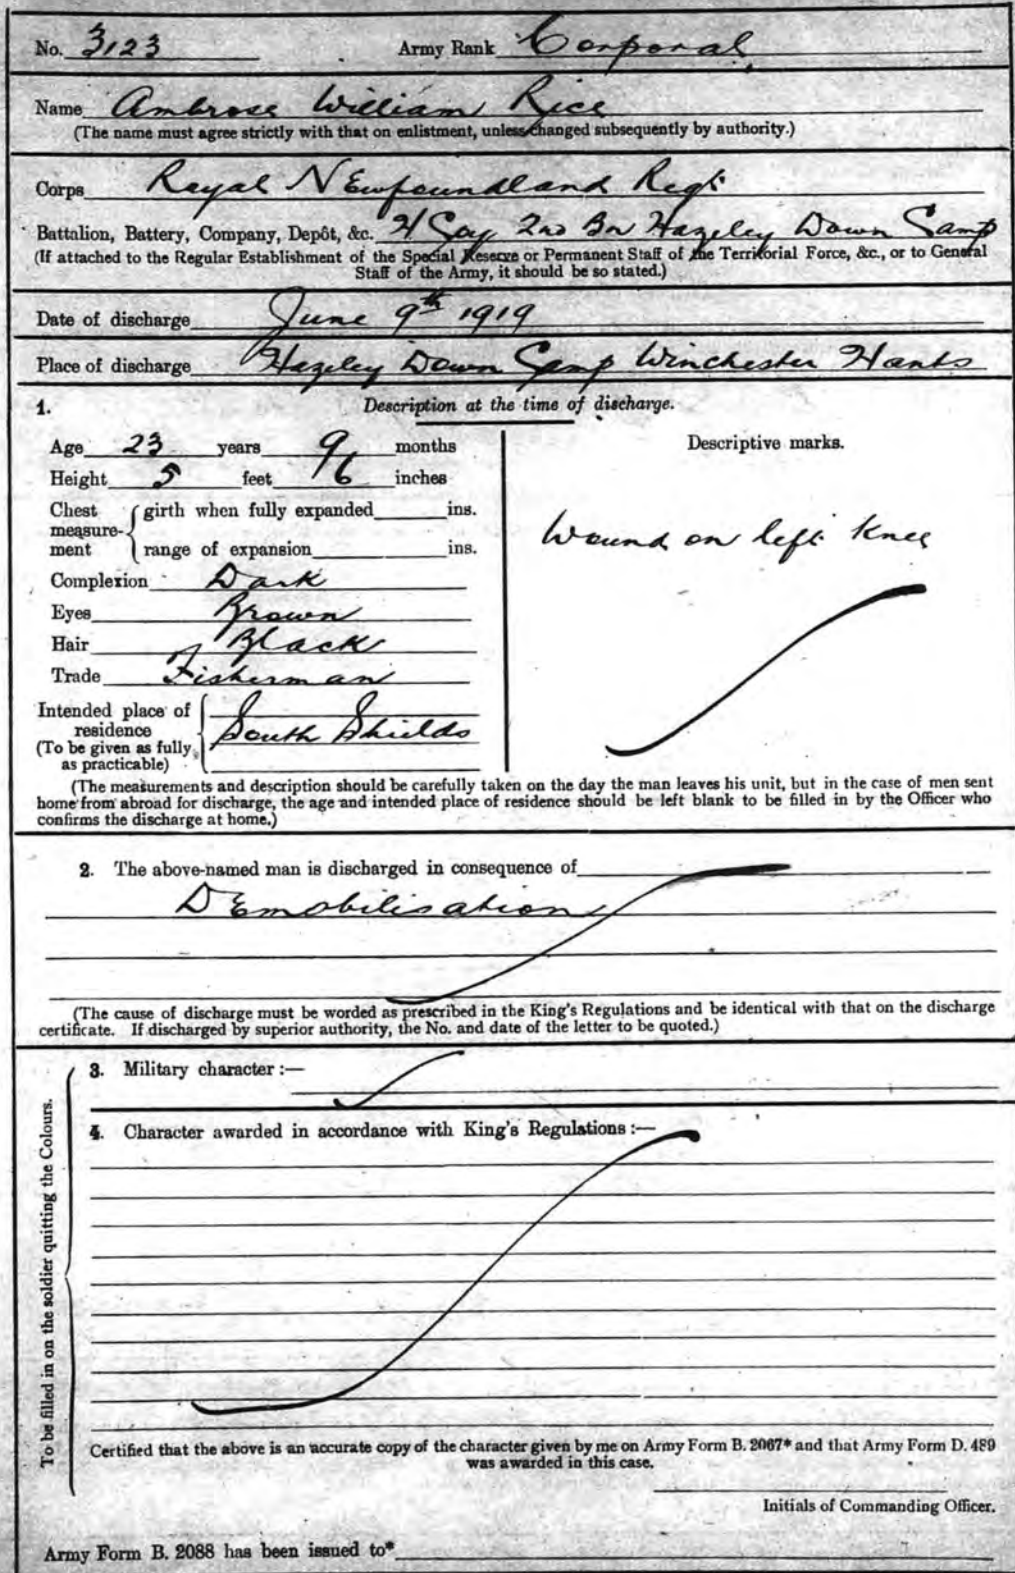 No. 3123 Army Rank Corporal
Name Ambrose William Rice
(The name must agree strictly with that on enlistment, unless changed subsequently by authority.)
Corps Royal Newfoundland Regt
Battalion, Battery, Company, Depôt, &c. H Coy 2nd Bn Hazeley Down Camp
(If attached to the Regular Establishment of the Special Reserve or Permanent Staff of the Territorial Force, &c., or to General
Staff of the Army, it should be so stated.)
Date of discharge June 9th 1919
Place of discharge Hazeley Down Camp Winchester Hants
1. Description at the time of discharge.
Age 23 years 9 months
Height 5 feet 6 inches
Chest measure-ment { girth when fully expanded ins.
range of expansion ins.
Complexion Dark
Eyes Brown
Hair Black
Trade Fisherman
Intended place of
residence South Shields
(To be given as fully
as practicable)
Descriptive marks.
Wound on left Knee
(The measurements and description should be carefully taken on the day the man leaves his unit, but in the case of men sent
home from abroad for discharge, the age and intended place of residence should be left blank to be filled in by the Officer who
confirms the discharge at home.)
2. The above-named man is discharged in consequence of
Demobilisation
(The cause of discharge must be worded as prescribed in the King's Regulations and be identical with that on the discharge
certificate. If discharged by superior authority, the No. and date of the letter to be quoted.)
To be filled in on the soldier quitting the Colours.
3. Military character :—
4. Character awarded in accordance with King's Regulations :—
Certified that the above is an accurate copy of the character given by me on Army Form B. 2067* and that Army Form D. 489
was awarded in this case.
Initials of Commanding Officer.
Army Form B. 2088 has been issued to*